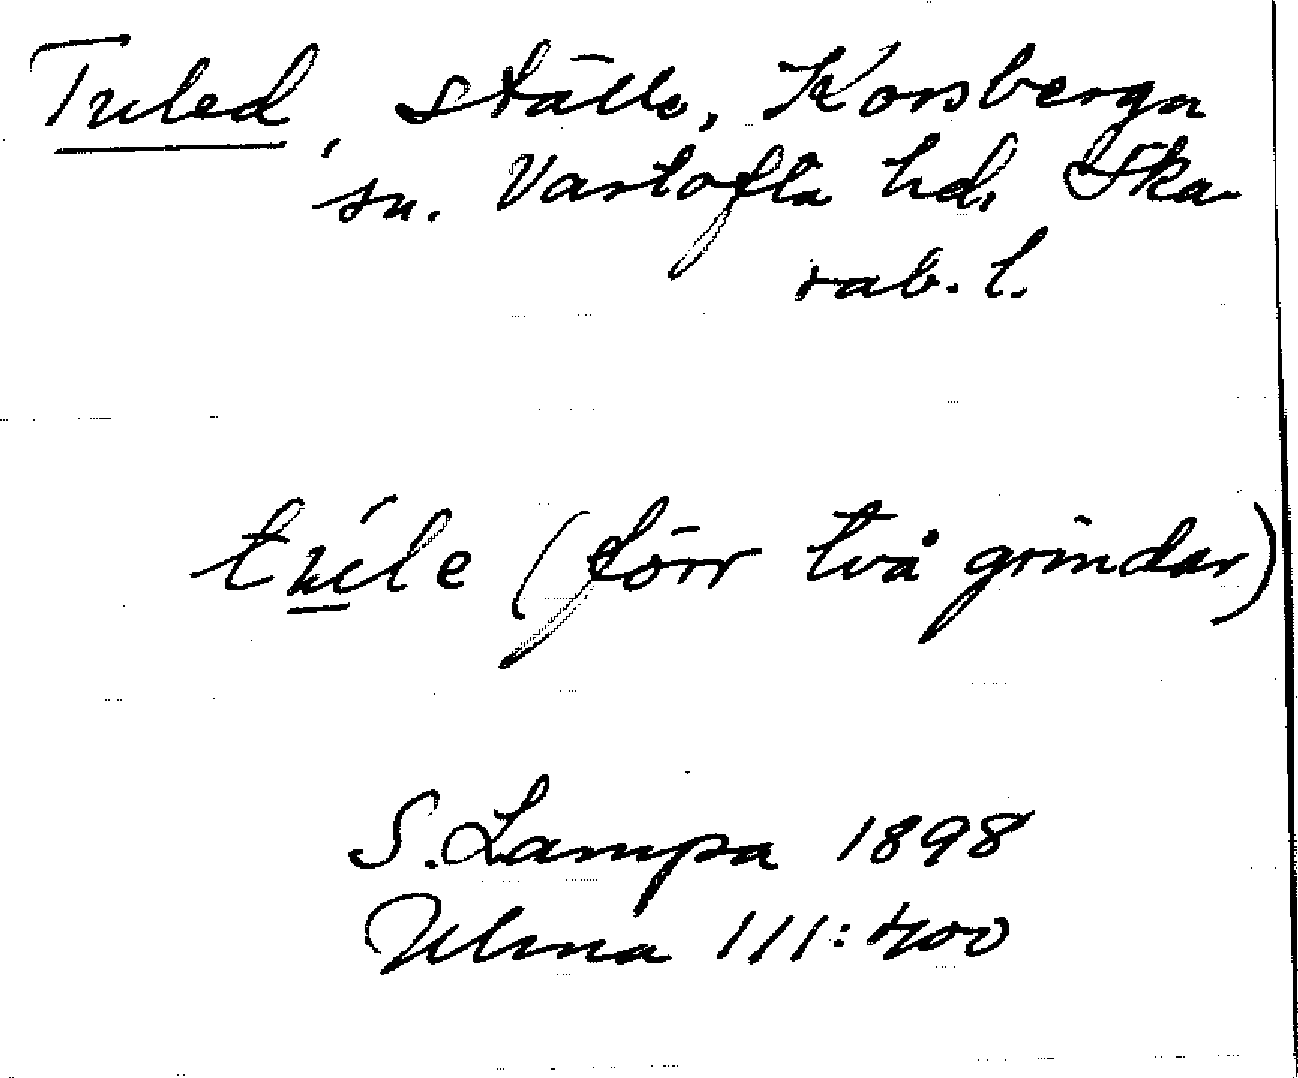 Tuled, ställe, Korsberga
sn. Vartofta hd, Ska-
rab. l.
tu̲íle (förr två grindar)
S. Lampa 1898
Ulma 111:400